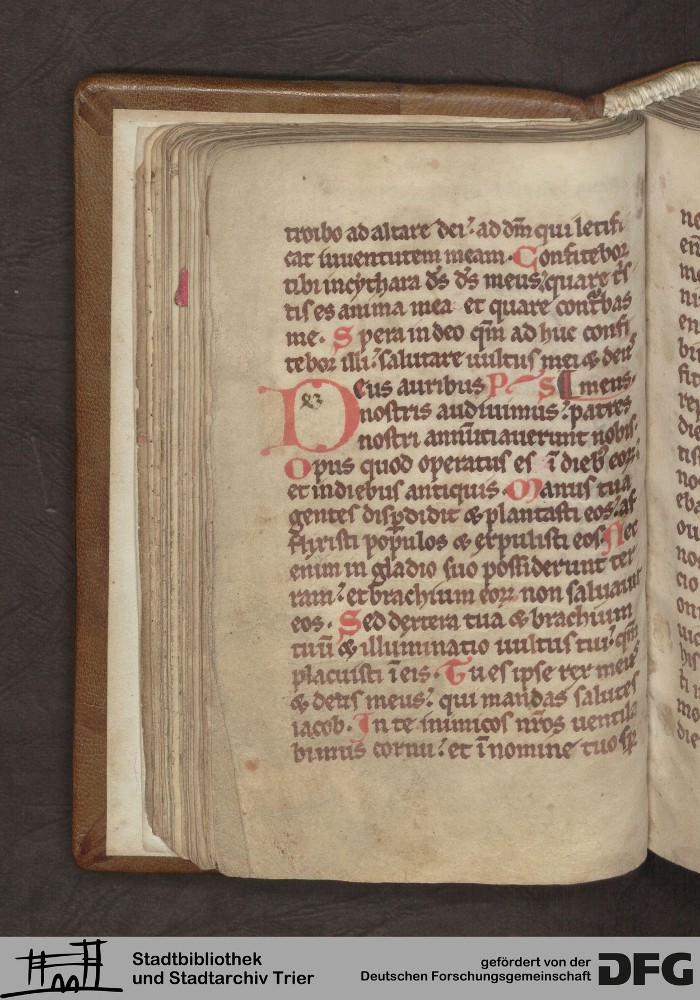 troibo ad altare dei: ad dm̄ qui letifi
cat iuuentutem meam. Confitebor
tibi in cythara ds̄ ds̄ meus: quare tris
tis es anima mea et quare contbas
me. Spera in deo qm̄ ad huc confi
tebor illi: salutare uultus mei & deus
Deus auribus Ps meus.
nostris audiuimus: patres
nostri annūtiauerunt nobis.
Opus quod operatus es ī dieb eoꝝ:
et in diebus antiquis. Manus tua
gentes dispdidit & plantasti eos: af
flixisti populos & expulisti eos. Nec
enim in gladio suo possiderunt ter
ram: et brachium eoꝝ non saluauit
eos. Sed dextera tua & brachium
tuū & illuminatio uultus tui: qm̄
placuisti ī eis. Tu es ipse rex meus
& deus meus: qui mandas salutes
iacob. In te inimicos nr̄os uentila
bimus cornu: et ī nomine tuo sp
Stadtbibliothek
und Stadtarchiv Trier
gefördert von der
Deutschen Forschungsgemeinschaft
DFG